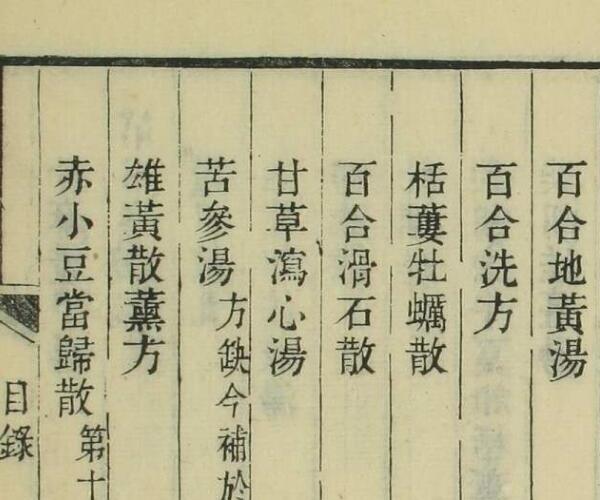 百合地黃湯
百合洗方
栝蔞牡蠣散
百合滑石散
甘草瀉心湯
苦參湯方缺今補於
雄黃散薰方
赤小豆當歸散第十
目錄